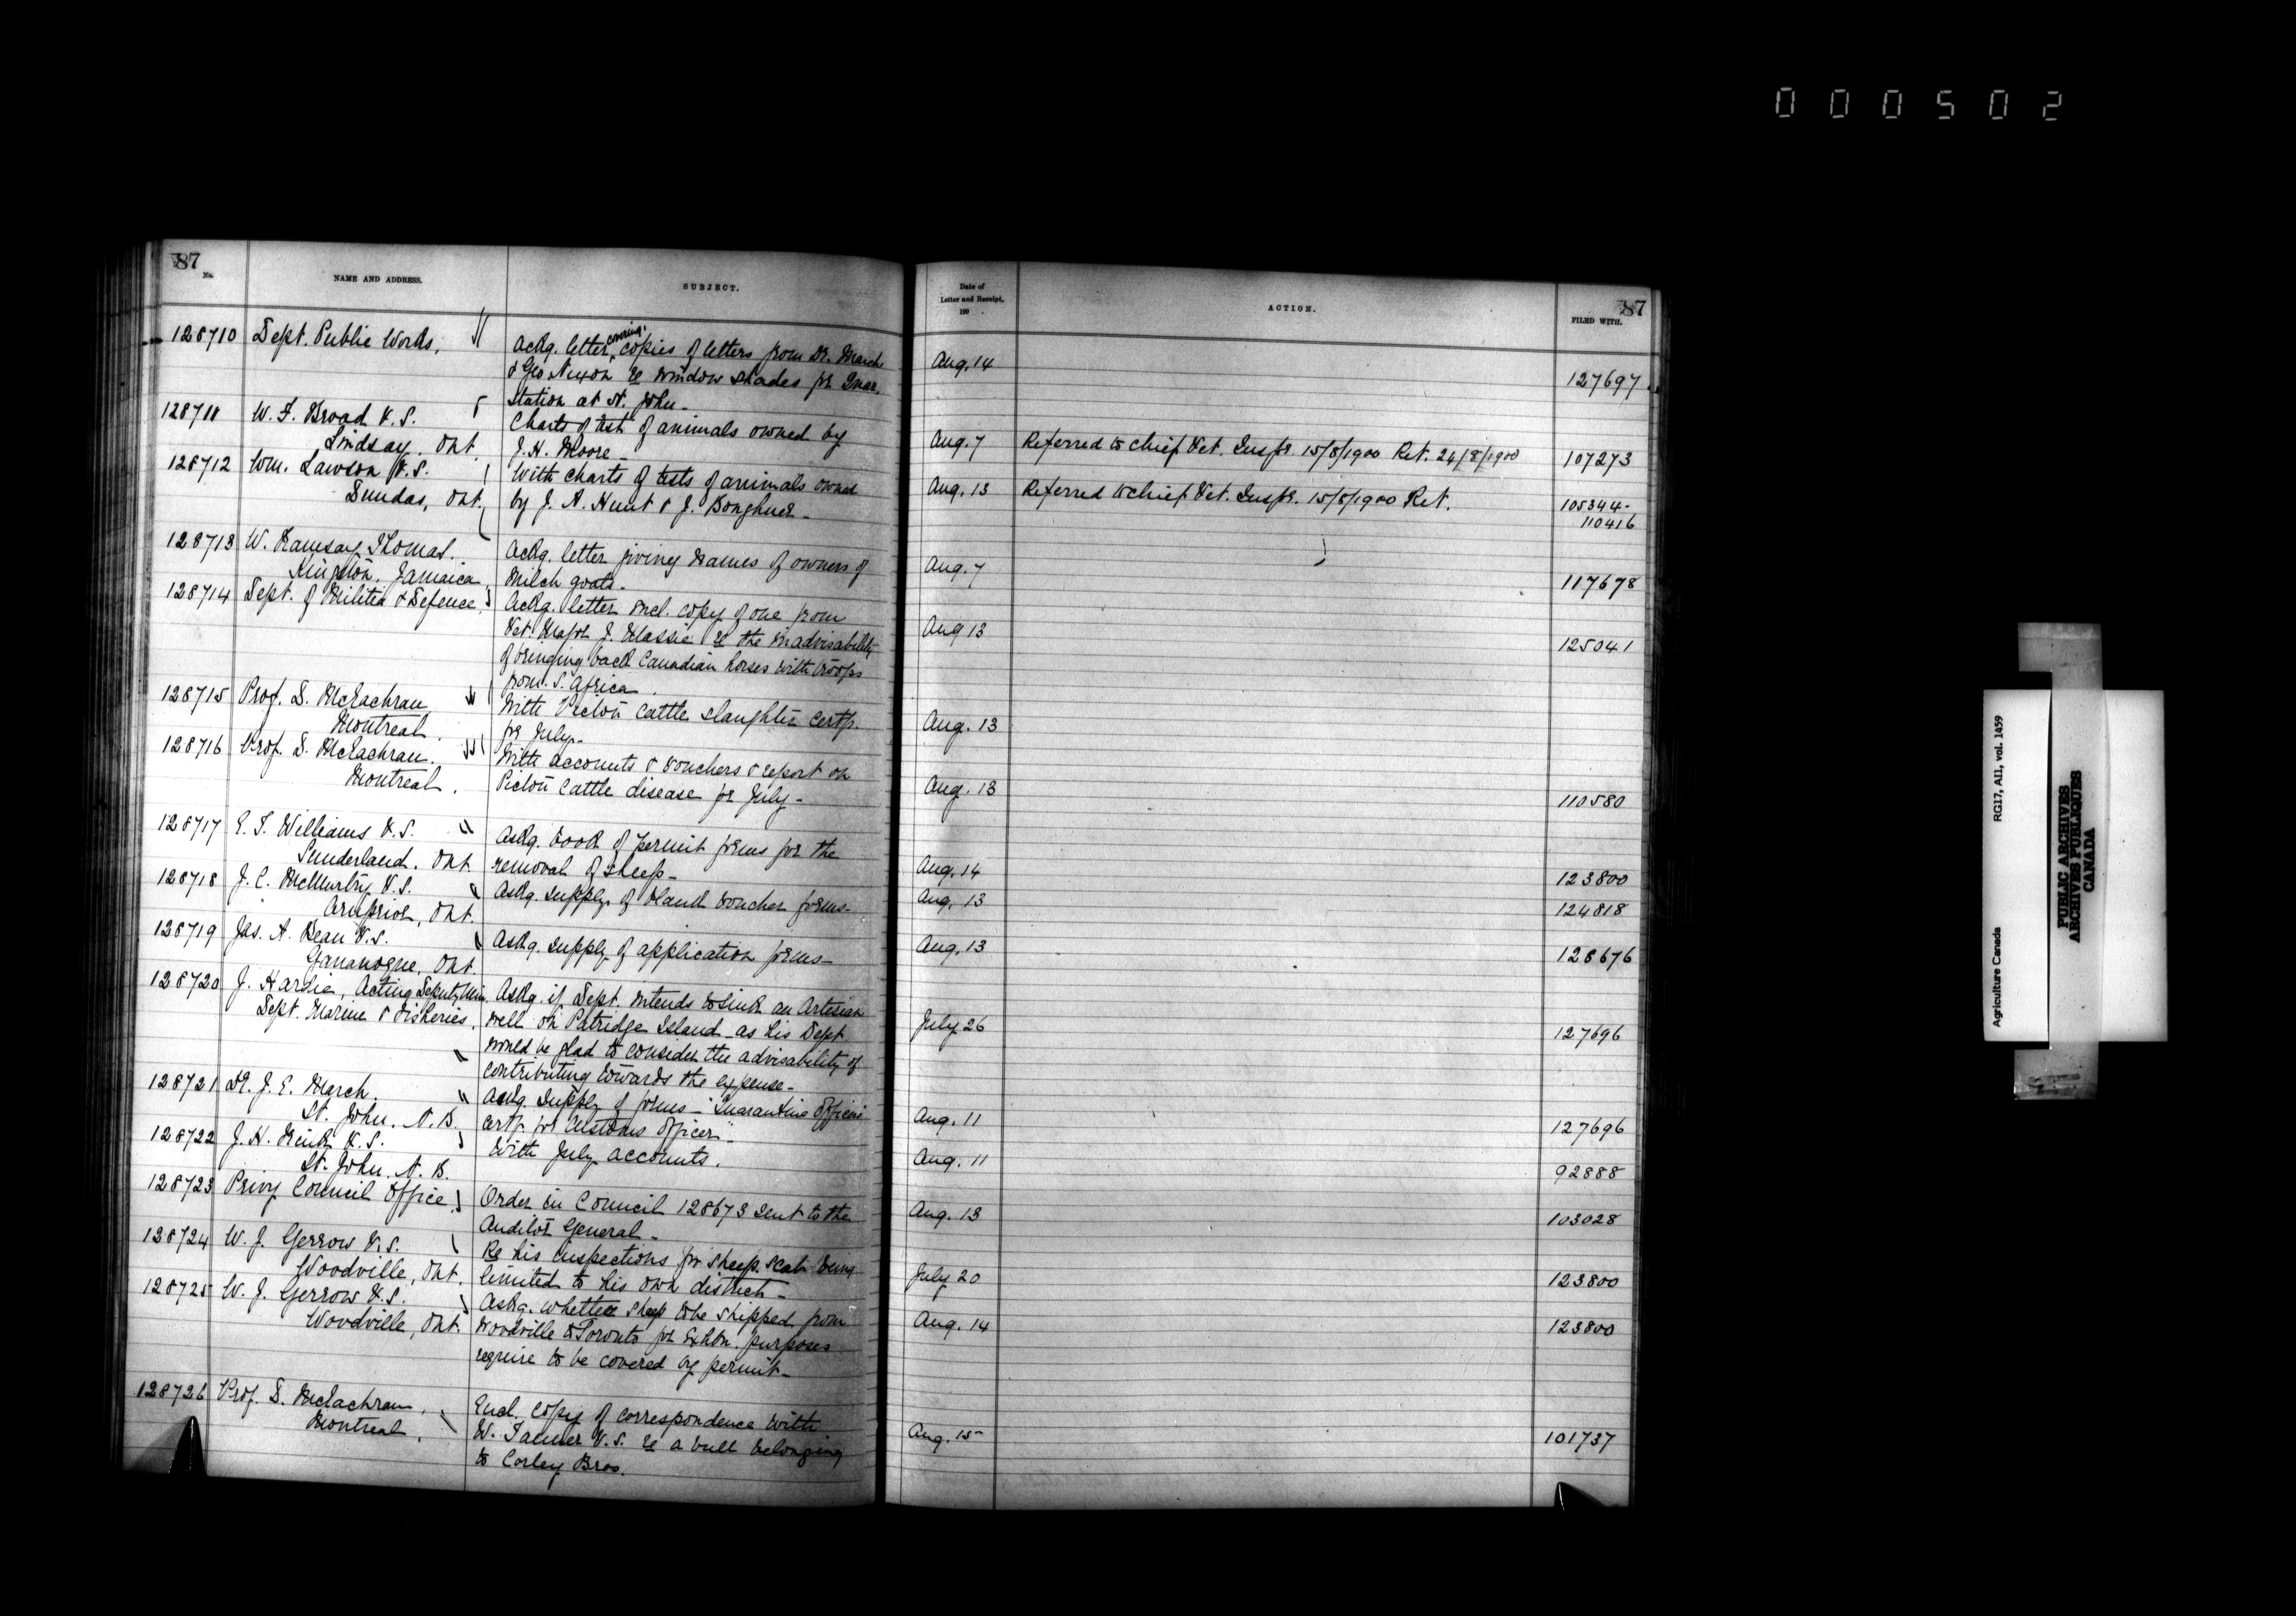 000502
87
No.
NAME AND ADDRESS.
SUBJECT.
Date of
Letter and Receipt,
190 .
ACTION.
FILED WITH.
87
128710 Dept. Public Works,
Ackg. letter covering copies of letters from Dr. March
& Geo Nixon re window shades for Quar.
Station at St. John -
Aug. 14
127697
128711 W. F. Broad V.S.
Lindsay, Ont.
Charts of test of animals owned by
J. H. Moore -
Aug. 7
Referred to Chief Vet. Inspr. 15/8/1900 Ret. 24/8/1900
107273
128712 Wm. Lawson V.S.
Dundas, Ont.
With charts of tests of animals owned
by J. A. Hunt & J. Boughner -
Aug. 13
Referred to Chief Vet. Inspr. 15/8/1900 Ret.
105344-
110416
128713 W. Ramsay Thomas.
Kingston, Jamaica,
Ackg. letter giving names of owners of
Milch goats -
Aug. 7
117678
128714 Dept. of Militia & Defence,
Ackg. letter encl. copy of one from
Vet. Major J. Massie re the inadvisability
of bringing back Canadian horses with troops
from S. Africa.
Aug 13
125041
128715 Prof. D. McEachran,
Montreal.
With Pictou Cattle slaughter Certf.
for July -
Aug. 13
128716 Prof. D. McEachran.
Montreal.
With accounts & vouchers & report on
Pictou Cattle disease for July -
Aug. 13
110580
128717 E. T. Williams V.S.
Sunderland, Ont.
Askg. book of permit forms for the
removal of sheep -
Aug. 14
123800
128718 J. C. McMurtry V.S.
Arnprior, Ont.
Askg. supply of blank voucher forms -
Aug. 13
124818
128719 Jas. A. Dean V.S.
Gananoque, Ont.
Askg. supply of application forms -
Aug. 13
128676
128720 J. Hardie, Acting Deputy Min.
Dept. Marine & Fisheries,
Askg. if Dept. intends to sink an Artesian
well on Patridge Island - as his Dept
would be glad to consider the advisability of
contributing towards the expense -
July 26
127696
128721 Dr. J. E. March.
St. John, N.B.
Askg. supply of forms - "Quarantine Officers
Certf. for Customs Officer" -
Aug. 11
127696
128722 J. H. Frink V.S.
St. John, N.B.
With July accounts.
Aug. 11
92888
128723 Privy Council Office,
Order in Council 128673 sent to the
Auditor General -
Aug. 13
103028
128724 W. J. Gerrow V.S.
Woodville, Ont.
Re his inspections for sheep scab being
limited to his own district -
July 20
123800
128725 W. J. Gerrow V.S.
Woodville, Ont.
Askg. whether sheep to be shipped from
Woodville to Toronto for Exhbn. purposes
require to be covered by permit -
Aug. 14
123800
128726 Prof. D. McEachran,
Montreal,
Encl. copy of correspondence with
W. Tanner V.S. re a bull belonging
to Corley Bros.
Aug. 15
101737
Agriculture Canada
RG17, AII, vol. 1459
PUBLIC ARCHIVES
ARCHIVES PUBLIQUES
CANADA